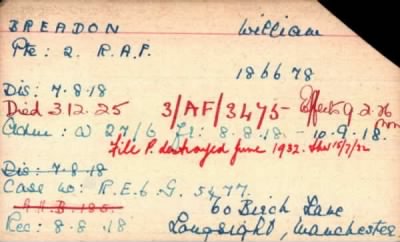 BREADON William
Pte: 2. R.A.F.
186678
Dis: 7.8.18
Died 3.12.25 3/AF/3475 - Effects 9.2.26
27/6 Fr: 8.8.18 - 10.9.18.
File P. destroyed June 1932. 15/7/32
Dis: 7.8.18
Case no: R.E.6.G. 5477.
60 Birch Lane
Rec: 8.8.18 Longsight, Manchester